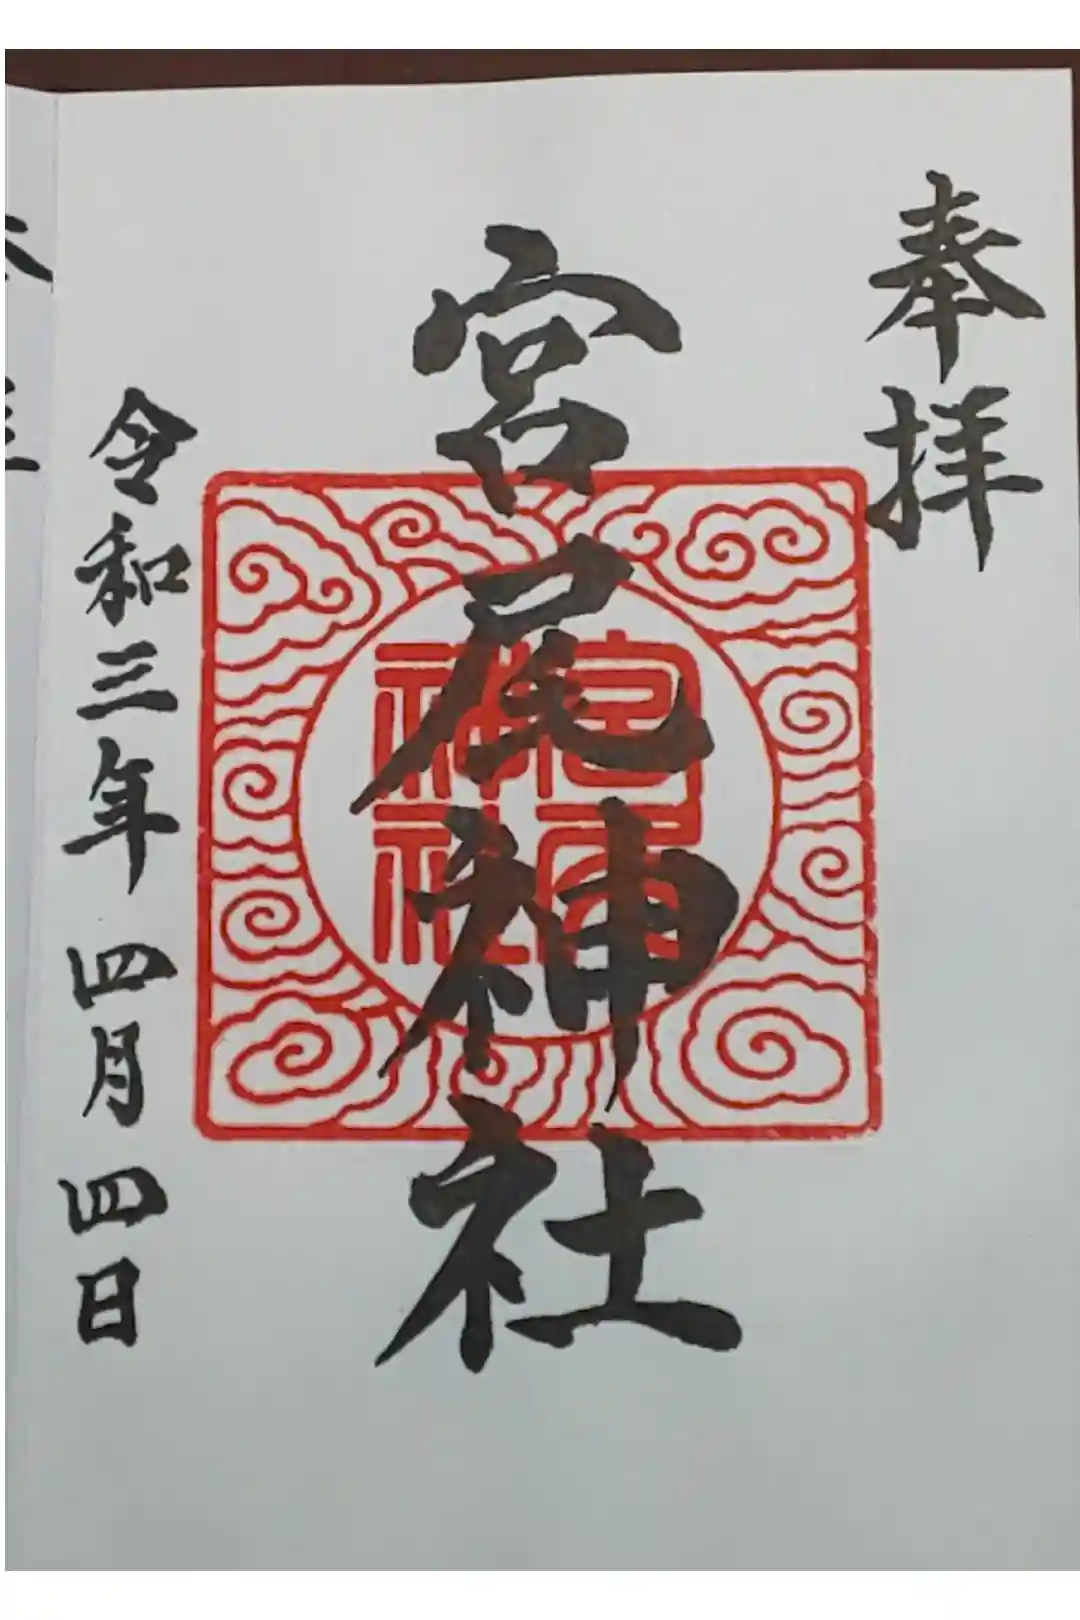 奉拝
宮尾神社
宮尾神社
令和三年四月四日